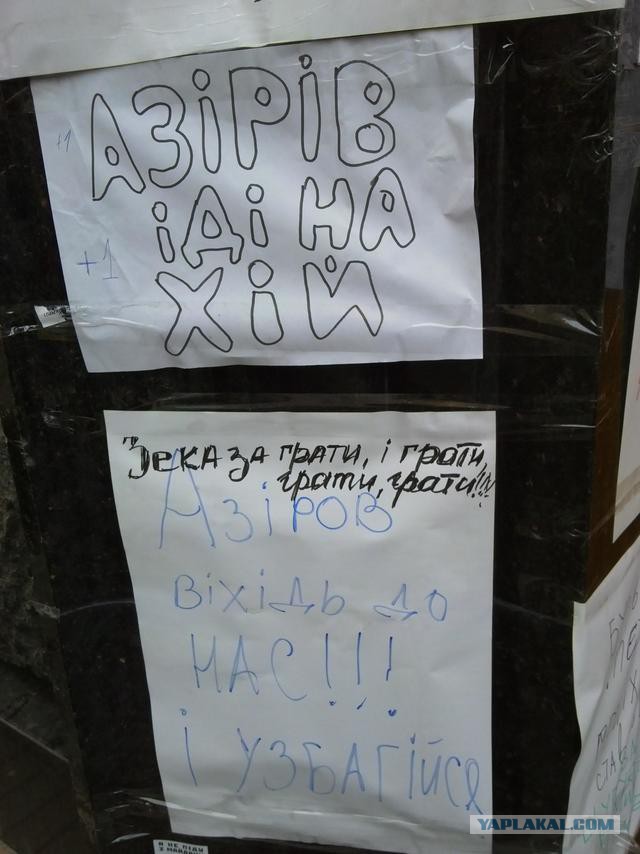 +1
АЗІРІВ
ІДІ НА
+1
ХІЙ
Зека за грати, і грати,
грати, грати!!!
Азіров
віхідь до
НАС!!!
і УЗБАГІЙСЯ
Я НЕ ПІДУ
З МАЙДАНУ
YAPLAKAL.COM